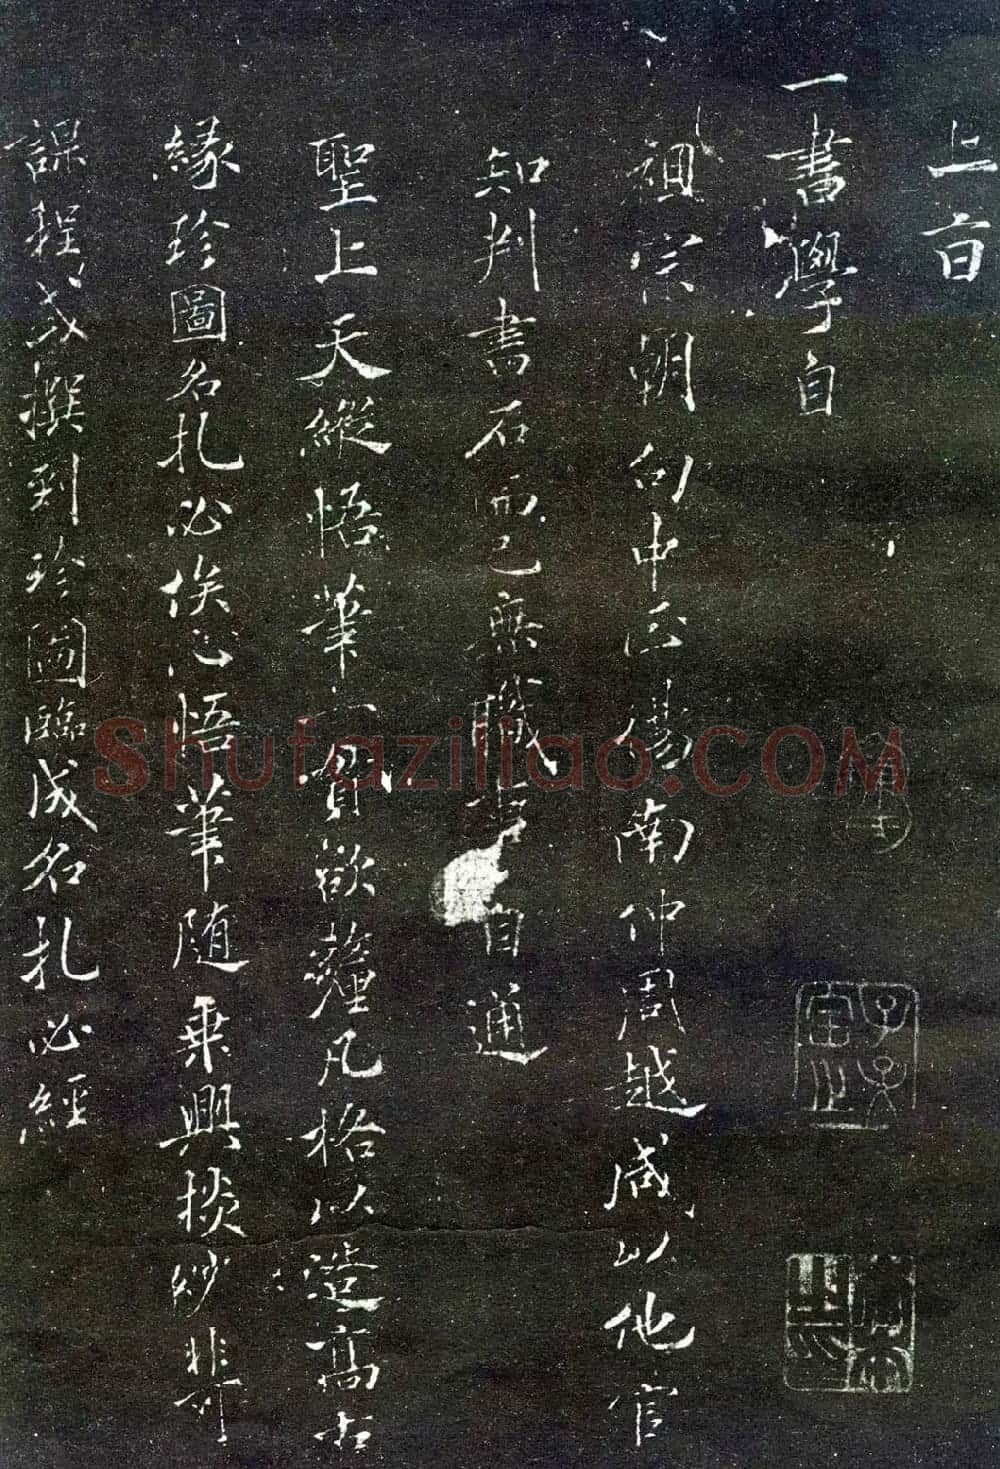 上旨
一書學自
祖宗朝句中正楊南仲周越咸以他官
知判書石而已無職事自通
聖上天縱悟筆一貫欲薤凡格以造高古
緣珍圖名札必俟心悟筆隨乗興掞紗非可
課程或撰到珍圖臨成名札必經
Shufaziliao.COM